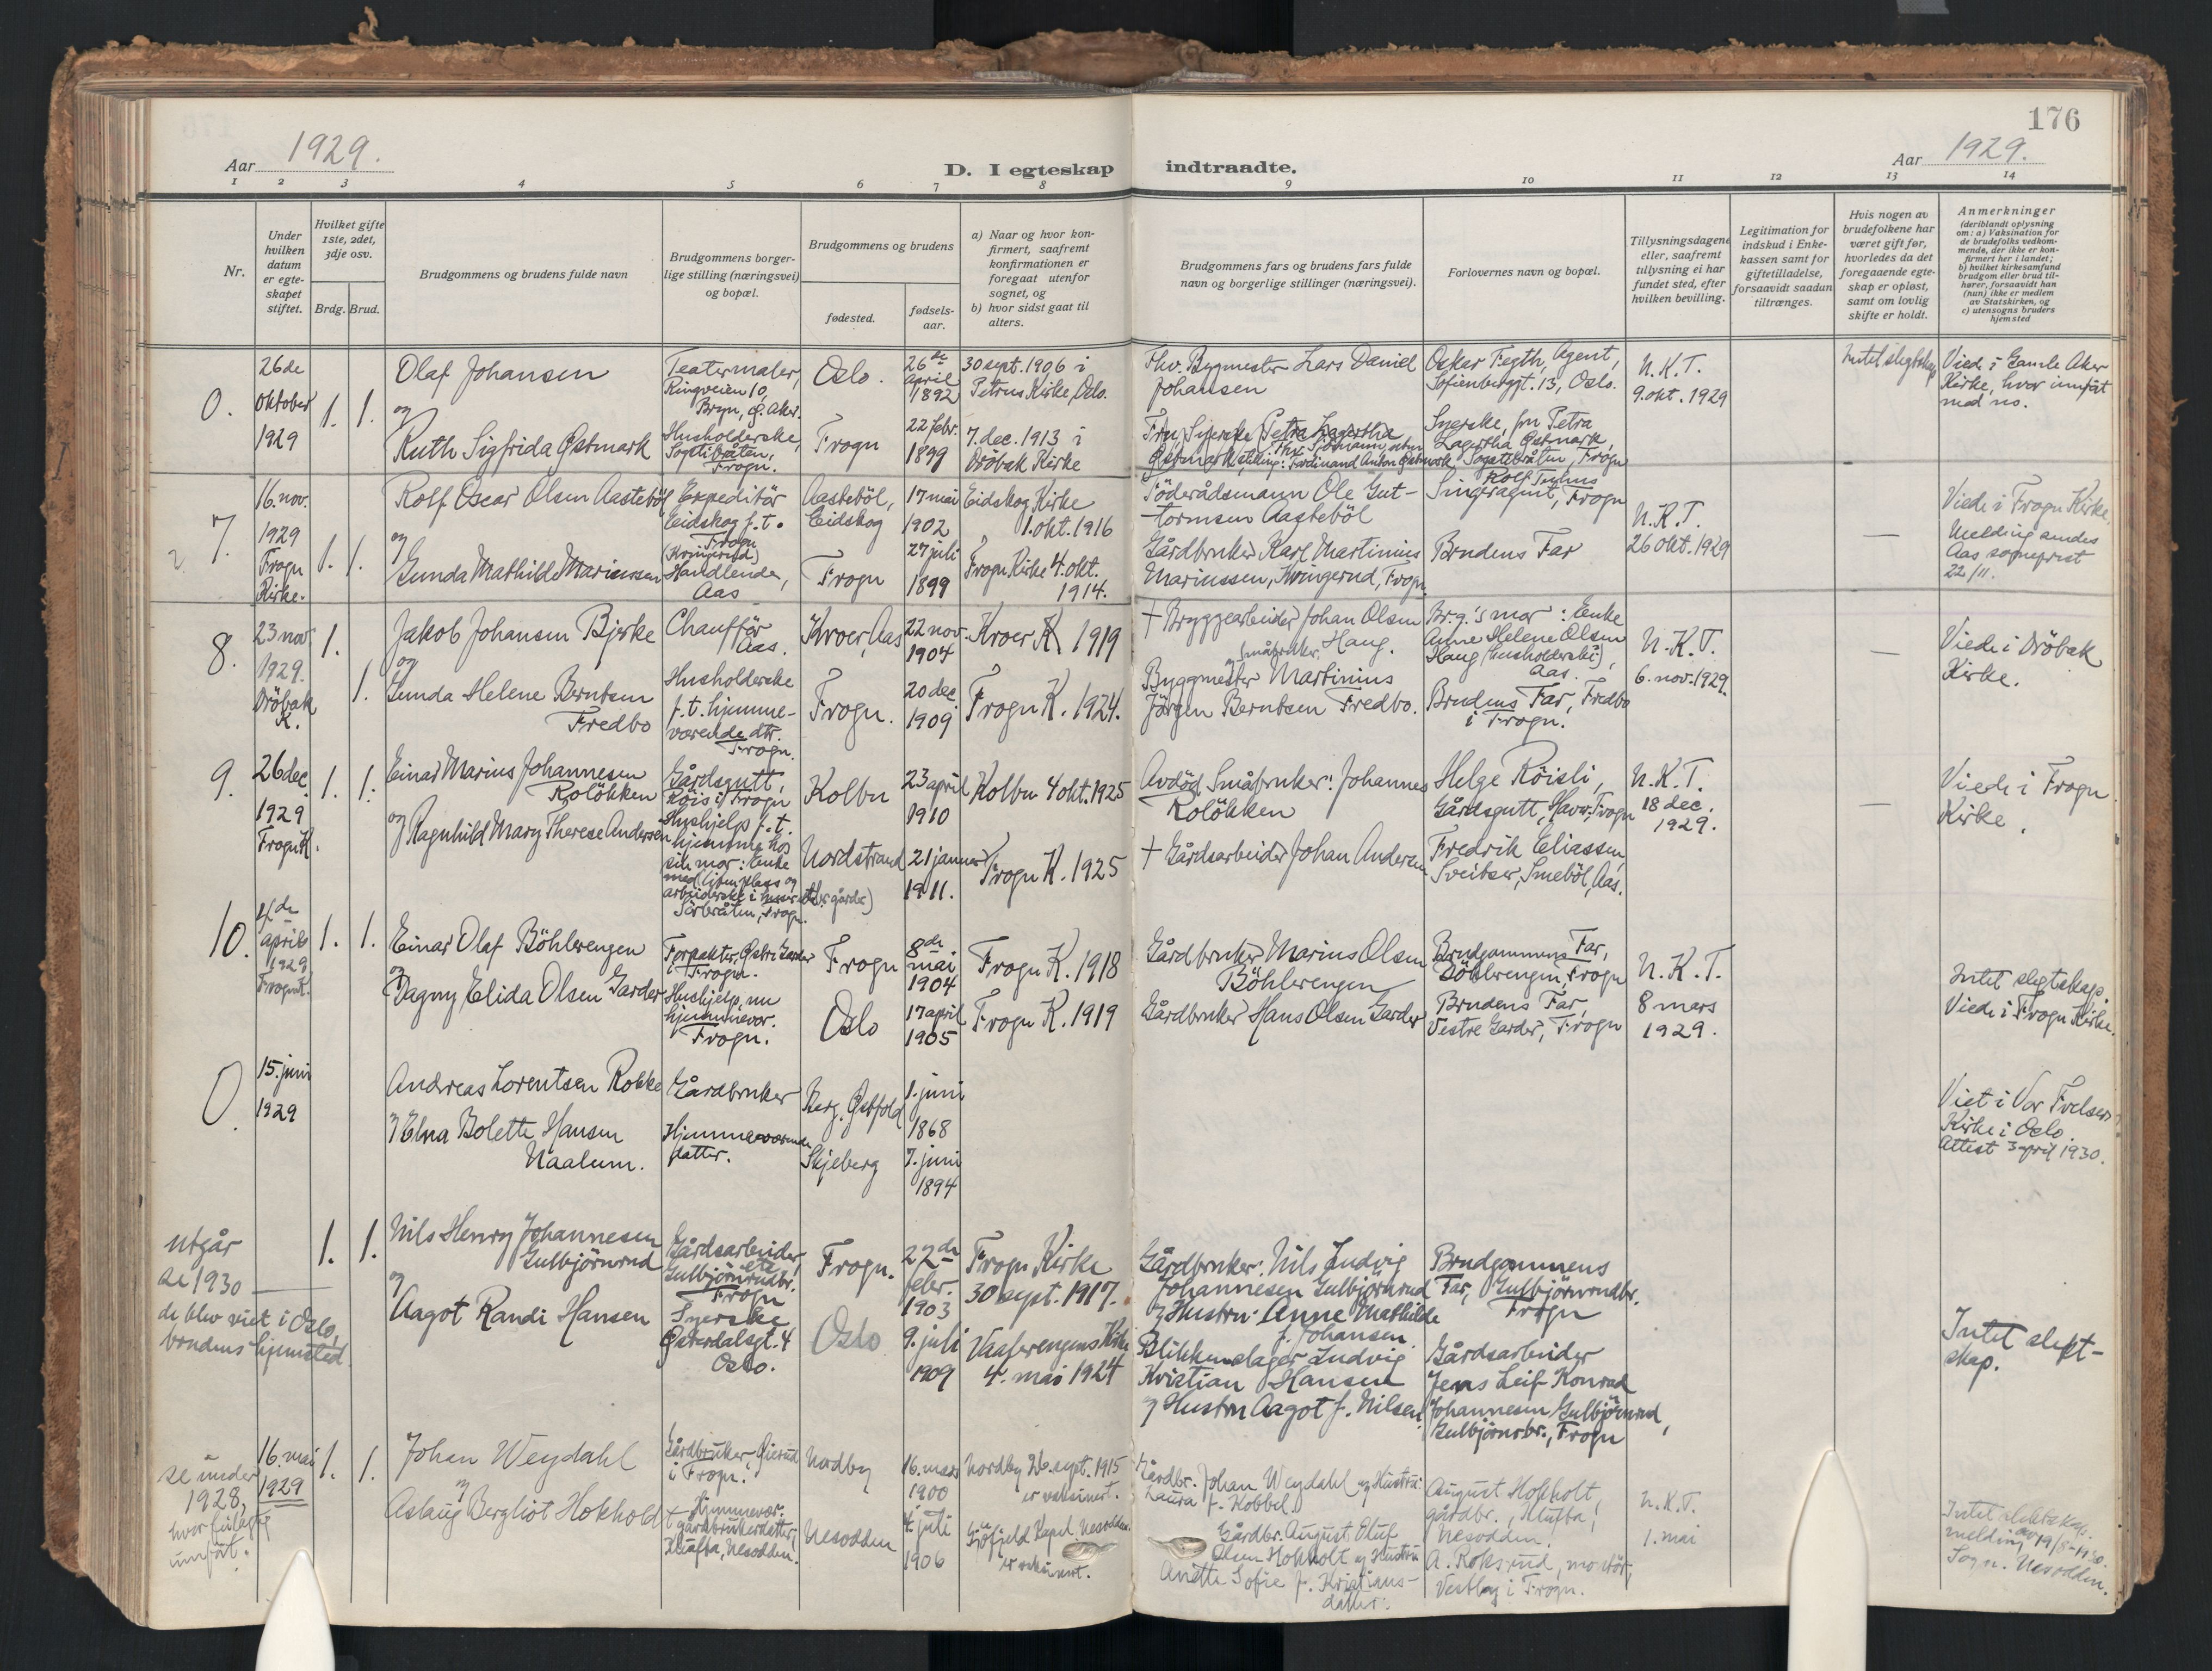 176
Aar 1929.
D. I egteskap indtraadte.
Aar 1929.
1 2 3 4 5 6 7 8 9 10 11 12 13 14
Nr.
Under
hvilken
datum
er egte-
skapet
stiftet.
Hvilket gifte
1ste, 2det,
3dje osv.
Brdg. Brud.
Brudgommens og brudens fulde navn
Brudgommens borger-
lige stilling (næringsvei)
og bopæl.
Brudgommens og brudens
fødested.
fødsels-
aar.
a) Naar og hvor kon-
firmert, saafremt
konfirmationen er
foregaat utenfor
sognet, og
b) hvor sidst gaat til
alters.
Brudgommens fars og brudens fars fulde
navn og borgerlige stillinger (næringsvei).
Forlovernes navn og bopæl.
Tillysningsdagene
eller, saafremt
tillysning ei har
fundet sted, efter
hvilken bevilling.
Legitimation for
indskud i Enke-
kassen samt for
giftetilladelse,
forsaavidt saadan
tiltrænges.
Hvis nogen av
brudefolkene har
været gift før,
hvorledes da det
foregaaende egte-
skap er opløst,
samt om lovlig
skifte er holdt.
Anmerkninger
(deriblandt oplysning
om: a) Vaksination for
de brudefolks vedkom-
mende, der ikke er kon-
firmert her i landet;
b) hvilket kirkesamfund
brudgom eller brud til-
hører, forsaavidt han
(hun) ikke er medlem
av Statskirken, og
c) utensogns bruders
hjemsted
0.
26de
oktober
1929
1. 1.
Olaf Johansen
og
Ruth Sigfrida Østmark
Teatermaler,
Ringveien 10,
Bryn, Ø. Aker.
Husholderske,
Sogstibråten,
Frogn.
Oslo.
Frogn
26de
april
1892
22 febr.
1899
30 sept. 1906 i
Petrus Kirke, Oslo.
7. dec. 1913 i
Dröbak Kirke
Fhv. Bygmester Lars Daniel
Johansen
Fru Syerske Petra Lagertha
Østmark, Ferdinand Anton Østmark
Oskar Fegth, Agent,
Sofienberggt. 13, Oslo.
Syerske, fru Petra
Lagertha Østmark,
Sogstibråten, Frogn
N.K.T.
9. okt. 1929
Intet slegtskap
Viede i Gamle Aker
Kirke, hvor innført
med no.
7.
16. nov.
1929
Frogn
Kirke.
1. 1.
Rolf Oscar Olsen Aasteböl
og
Gunda Mathilde Mariussen
Expeditör
Eidskog f. t.
Frogn
(Kringerud)
Handlende,
Aas
Aasteböl,
Eidskog
Frogn
17 mai
1902
27 juli
1899
Eidskog Kirke
1. okt. 1916
Frogn Kirke 4. okt.
1914.
Föderådsmann Ole Gut-
tormsen Aasteböl
Gårdbruker Karl Martinius
Mariussen, Kringerud, Frogn
Rolf
Singeragent, Frogn
Brudens Far
N.K.T.
26 okt. 1929
—
Viede i Frogn Kirke.
Melding sendes
Aas sogneprest
22/11.
8.
23 nov.
1929.
Dröbak
K.
1.
1.
Jakob Johansen Bjerke
og
Gunda Helene Berntsen
Fredbo
Chaufför
Aas.
Husholderske
f. t. hjemme-
værende dtr.
Frogn.
Kroer, Aas
Frogn.
22 nov.
1904
20 dec.
1909
Kroer K 1919
Frogn K. 1924.
† Bryggearbeider Johan Olsen
Haug.
og småbruker,
Byggmester Martinius
Jörgen Berntsen Fredbo.
Br.g.'s mor: Enke
Anne Helene Olsen
Haug (husholderske),
Aas.
Brudens Far, Fredbo
i Frogn.
N.K.T.
6. nov. 1929.
—
Viede i Dröbak
Kirke.
9.
26 dec.
1929
Frogn K.
1. 1.
Einar Marius Johannesen
Kolökken
og Ragnhild Mary Therese Andersen
Gårdsgutt,
Röis i Frogn
Hushjelp f. t.
hjemme hos
sin mor: Enke
med liten plass og
arbeiderske i
Sörbråten, Frogn.
Kolbu
Nordstrand
23 april
1910
21 januar
1911.
Kolbu 4 okt. 1925
Frogn K. 1925
Avdöd Småbruker: Johannes
Kolökken
† Gårdsarbeider Johan Andersen
Helge Röisli,
Gårdsgutt, Haver, Frogn
Fredrik Eliassen,
Sveitser, Smeböl, Aas.
N.K.T.
18 dec.
1929.
—
Viede i Frogn
Kirke.
10.
4de
april
1929
Frogn K.
1. 1.
Einar Olaf Böhlerengen
og
Dagny Elida Olsen Garder
Forpakter, Østre Garder
i Frogn.
Hushjelp, nu
hjemmevær.
Frogn.
Frogn
Oslo
8de
mai
1904
17 april
1905
Frogn K. 1918
Frogn K. 1919
Gårdbruker Marius Olsen
Böhlerengen
Gårdbruker Hans Olsen Garder
Brudgommens Far,
Böhlerengen, Frogn
Brudens Far,
Vestre Garder, Frogn
N.K.T.
8 mars
1929.
Intet slegtskap.
Viede i Frogn Kirke.
0.
15. juni
1929
Andreas Lorentsen Rokke
og Elna Bolette Hansen
Naalum.
Gårdbruker
Hjemmeværende
datter.
Berg, Østfold
Skjeberg
1. juni
1868
7. juni
1894
Viet i Vor Frelsers
Kirke i Oslo.
Attest 3 april 1930.
utgår
se 1930
de blev viet i Oslo,
brudens hjemsted.
1. 1.
Nils Henry Johannesen
Gulbjörnrud
og
Aagot Randi Hansen
Gårdsarbeider,
Gulbjörnrudbr.
Frogn
Syerske
Østerdalsgt. 4
Oslo.
Frogn.
Oslo
22de
febr.
1903
9. juli
1909
Frogn Kirke
30 sept. 1917.
Vaalerengens Kirke
4. mai 1924
Gårdbruker: Nils Ludvig
Johannesen Gulbjörnrud
og Hustru: Anne Mathilde
f. Johansen
Blikkenslager Ludvig
Kristian Hansen
og Hustru Aagot f. Nilsen
Brudgommens
Far, Gulbjörnrudbr.
Frogn
Gårdsarbeider
Jens Leif Konrad
Johannesen Gulbjörnrud,
Gulbjörnsbr., Frogn
Intet slekt-
skap.
se under
1928,
hvor
innført.
16. mai
1929
1. 1.
Johan Weydahl
og
Aslaug Bergliot Hokhold
Gårdbruker,
i Frogn.
Hjemmevær.
gårdbrukerdatter,
Klufta, Nesodden.
Nordby
Nesodden
16. mars
1900
4. juli
1906
Nordby 26. sept. 1915
er vaksinert.
Gjöfjeld Kapel Nesodden
er vaksinert.
Gårdbr. Johan Weydahl og Hustru:
Laura f. Kobbel
Gårdbr. August Oluf
Olsen Hokholt og Hustru
Anette Sofie f. Kristians-
datter.
August Hokholt,
gårdbr., Klufta,
Nesodden.
A. Roksrud, montör,
Vestby i Frogn.
N.K.T.
1. mai
Intet slektskap.
melding av 19/8-1930.
Sogn. Nesodden.